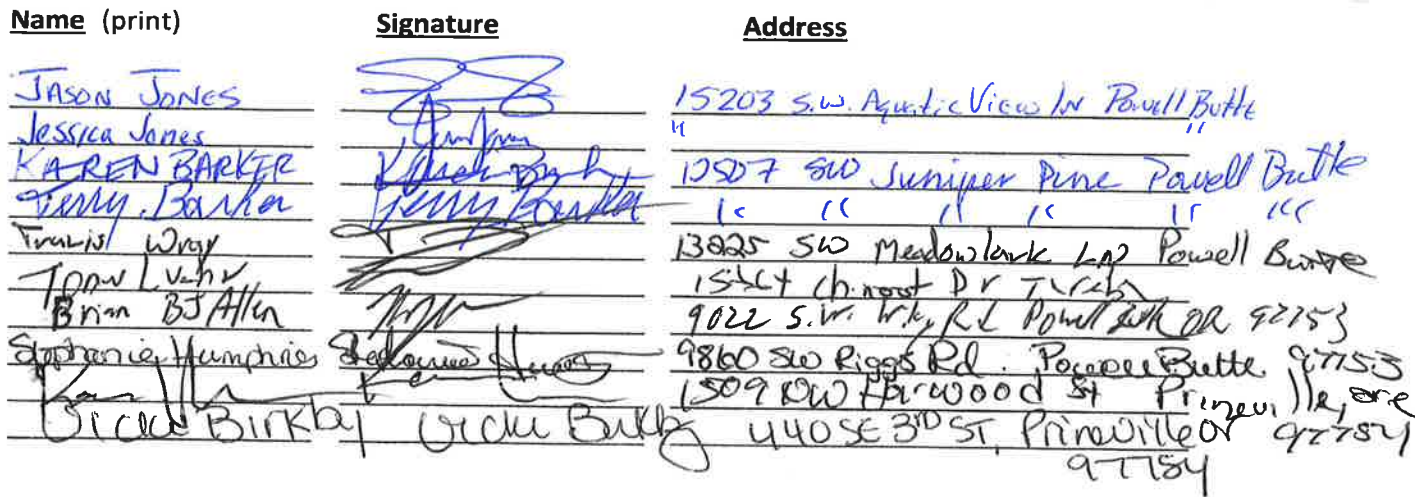 Name (print) Signature Address
JASON JONES 15203 S.W. Aquatic View Ln Powell Butte
Jessica Jones " "
KAREN BARKER Karen 12507 SW Juniper Pine Powell Butte
Terry Barker Terry Barker " " " " " "
Travis Wray 13225 SW Meadowlark Ln Powell Butte
Dr
Brian BJ Allen 9022 S.W. Rd Powell Butte OR 97753
Stephanie Humphries 9860 SW Riggs Rd. Powell Butte 97753
1509 NW Harwood St Prineville, ore 97754
Vicki Birkby Vicki Birkby 440 SE 3RD ST, Prineville or
97754